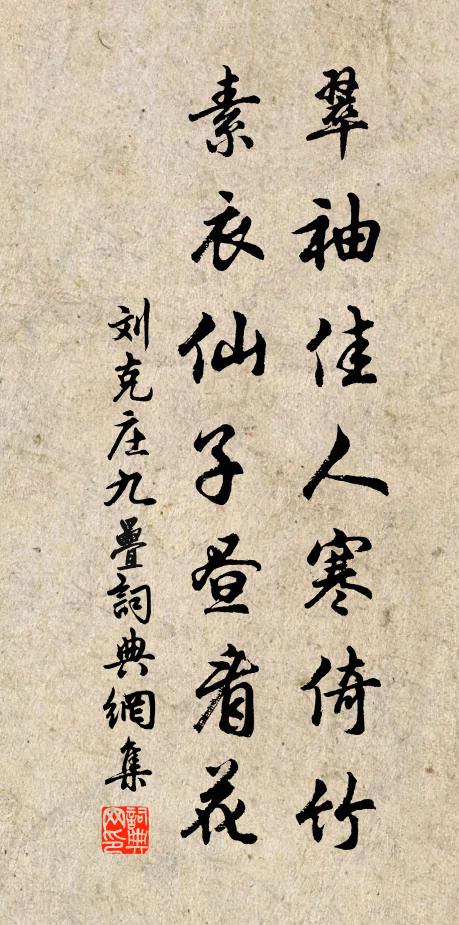 翠袖佳人寒倚竹
素衣仙子昼看花
刘克庄九叠詞典網集
詞典网印